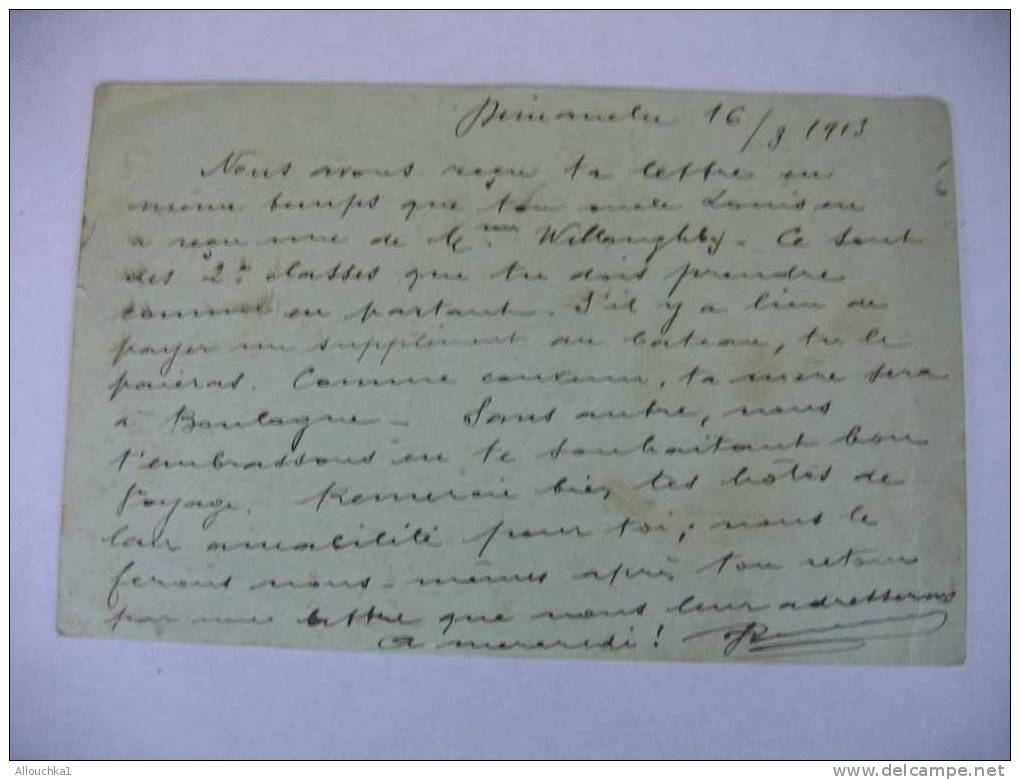 Dimanche 16/3 1913
Nous avons reçu ta lettre en
même temps que ton oncle Louis en
a reçu une de Mme Willoughby. Ce sont
des 2es classes que tu dois prendre
comme en partant. S'il y a lieu de
payer un supplément au bateau, tu le
paieras. Comme convenu, ta mère sera
à Boulogne - Sans autre, nous
t'embrassons en te souhaitant bon
voyage. Remercie bien tes hôtes de
leur amabilité pour toi; nous le
ferons nous-mêmes après ton retour
par une lettre que nous leur adresserons
A mercredi !
Allouchka1
www.delcampe.net